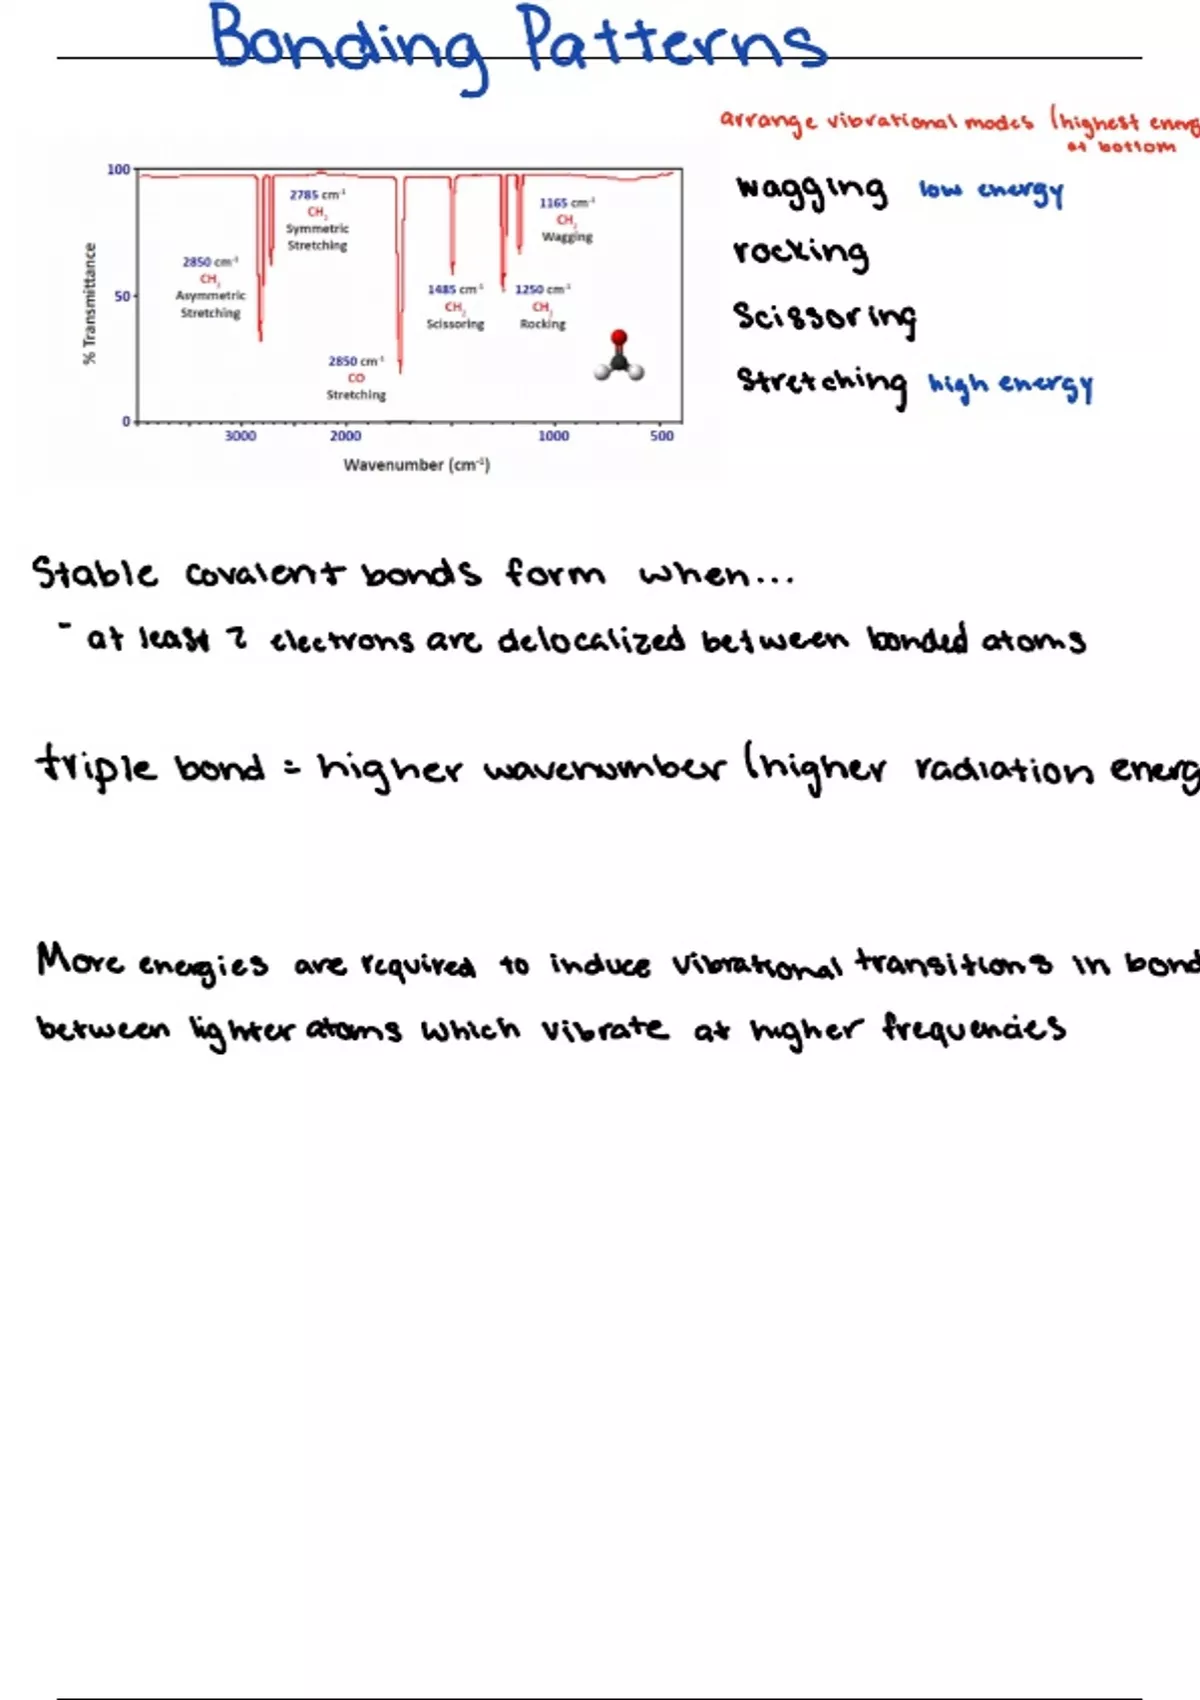 Bonding Patterns
arrange vibrational modes (highest energ
at bottom
wagging low energy
rocking
Scissoring
Stretching high energy
100
2785 cm⁻¹
CH₂
Symmetric
Stretching
1165 cm⁻¹
CH₂
Wagging
2850 cm⁻¹
CH₂
Asymmetric
Stretching
50
1485 cm⁻¹
CH₂
Scissoring
1250 cm⁻¹
CH₂
Rocking
2850 cm⁻¹
CO
Stretching
0
% Transmittance
3000 2000 1000 500
Wavenumber (cm⁻¹)
Stable covalent bonds form when...
- at least 2 electrons are delocalized between bonded atoms
triple bond = higher wavenumber (higher radiation energ
More energies are required to induce vibrational transitions in bond
between lighter atoms which vibrate at higher frequencies